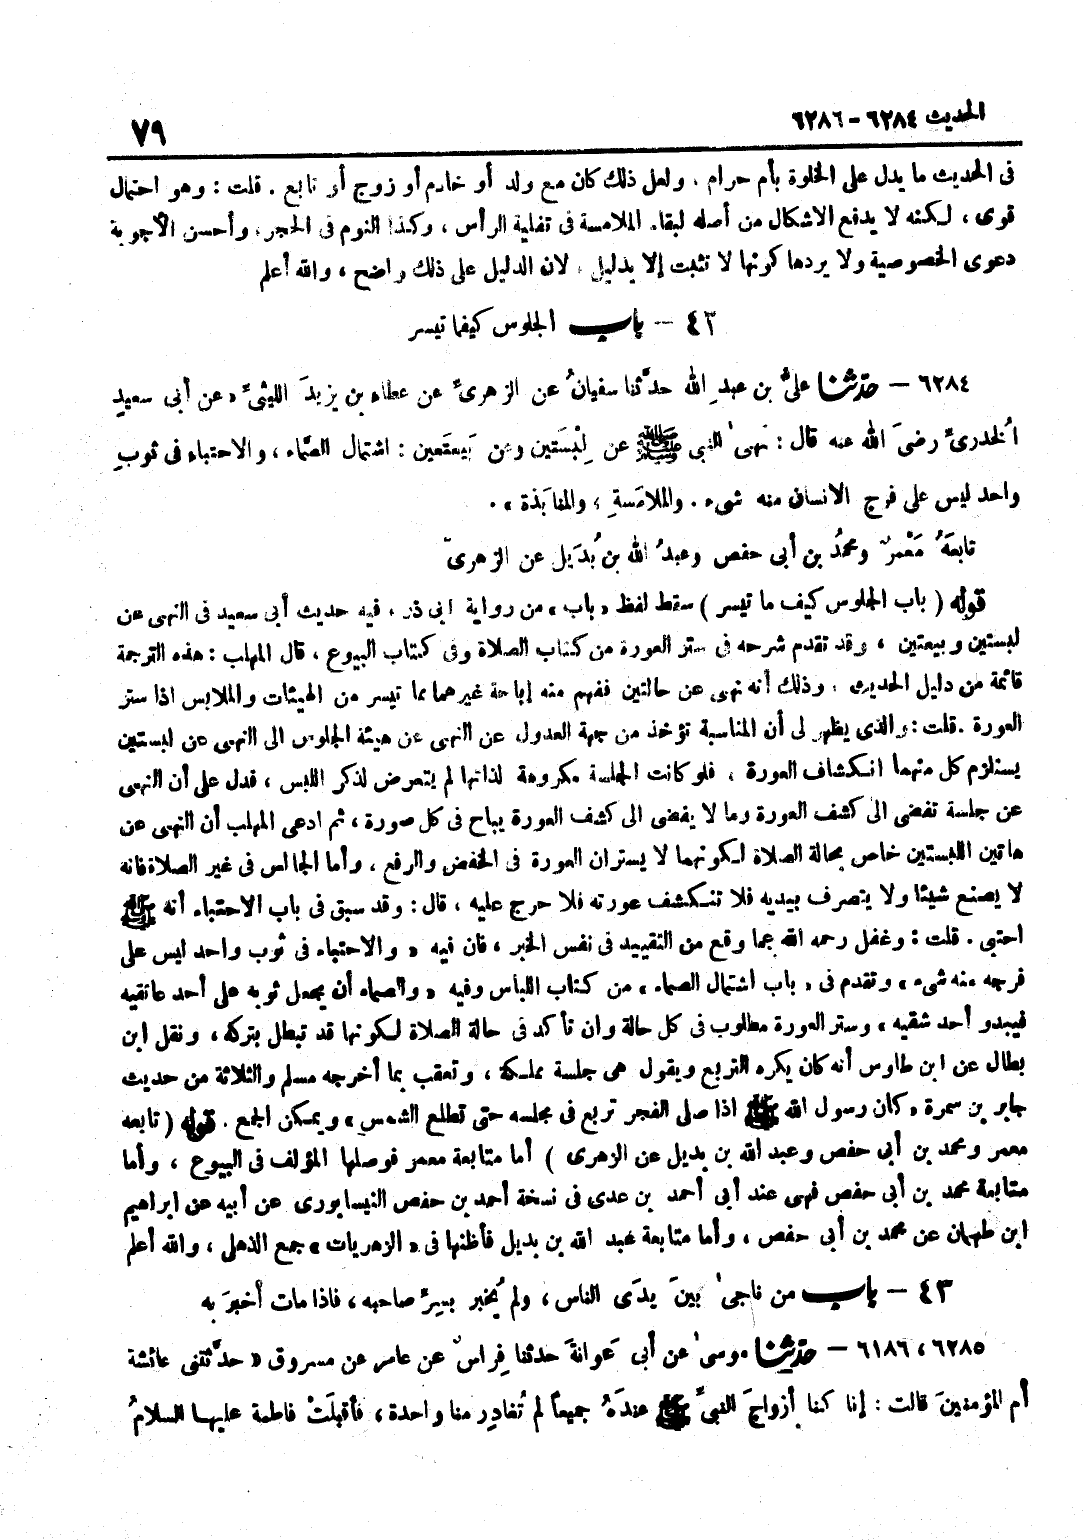 الحديث ٦٢٨٤ - ٦٢٨٦
٧٩
فى الحديث ما يدل على الخلوة بأم حرام . ولعل ذلك كان مع ولد أو خادم أو زوج أو تابع . قلت : وهو احتمال
قوى ، لكنه لا يدفع الاشكال من أصله لبقاء الملامسة فى تفلية الرأس ، وكذا النوم فى الحجر، وأحسن الأجوبة
دعوى الخصوصية ولا يردها كونها لا تثبت إلا بدليل ، لان الدليل على ذلك واضح ، والله أعلم
٤٢ - باب الجلوس كيفما تيسر
٦٢٨٤ - حدّثنا علىُّ بن عبدِ الله حدَّثنا سفيانُ عن الزهرىِّ عن عطاء بن يزيدَ الليثىِّ « عن أبى سعيدٍ
الخدرىِّ رضىَ الله عنه قال : نهى النبى ﷺ عن لِبْستَين وعن بَيعتَعين : اشتمال الصَّماء ، والاحتباء فى ثوبٍ
واحد ليس على فرج الانسان منه شىء . والملامَسةِ ، والمنابَذة » .
تابعَهُ مَعْمرٌ ومحمدُ بن أبى حفص وعبدُ الله بن بُدَيل عن الزهرىّ
قوله ( باب الجلوس كيف ما تيسر ) سقط لفظ « باب » من رواية أبى ذر ، فيه حديث أبى سعيد فى النهى عن
لبستين وبيعتين ، وقد تقدم شرحه فى ستر العورة من كتاب الصلاة وفى كتاب البيوع ، قال المهلب : هذه الترجمة
قائمة من دليل الحديث ، وذلك أنه نهى عن حالتين ففهم منه إباحة غيرهما مما تيسر من الهيئات والملابس اذا ستر
العورة . قلت : والذى يظهر لى أن المناسبة تؤخذ من جهة العدول عن النهى عن هيئة الجلوس الى النهى عن لبستين
يستلزم كل منهما انكشاف العورة ، فلو كانت الجلسة مكروهة لذاتها لم يتعرض لذكر اللبس ، فدل على أن النهى
عن جلسة تفضى الى كشف العورة وما لا يفضى الى كشف العورة يباح فى كل صورة ، ثم ادعى المهلب أن النهى عن
هاتين اللبستين خاص بحالة الصلاة لكونهما لا يستران العورة فى الخفض والرفع ، وأما الجالس فى غير الصلاة فانه
لا يصنع شيئا ولا يتصرف بيديه فلا تنكشف عورته فلا حرج عليه ، قال : وقد سبق فى باب الاحتباء أنه ﷺ
احتبى . قلت : وغفل رحمه الله عما وقع من التقييد فى نفس الخبر ، فان فيه « والاحتباء فى ثوب واحد ليس على
فرجه منه شىء » وتقدم فى « باب اشتمال الصماء » من كتاب اللباس وفيه « والصماء أن يجعل ثوبه على أحد عاتقيه
فيبدو أحد شقيه » وستر العورة مطلوب فى كل حالة وان تأكد فى حالة الصلاة لكونها قد تبطل بتركه ، ونقل ابن
بطال عن ابن طاوس أنه كان يكره التربع ويقول هى جلسة مملكة ، وتعقب بما أخرجه مسلم والثلاثة من حديث
جابر بن سمرة « كان رسول الله ﷺ اذا صلى الفجر تربع فى مجلسه حتى تطلع الشمس » ويمكن الجمع . قوله ( تابعه
معمر ومحمد بن أبى حفص وعبد الله بن بديل عن الزهرى ) أما متابعة معمر فوصلها المؤلف فى البيوع ، وأما
متابعة محمد بن أبى حفص فهى عند أبى أحمد بن عدى فى نسخة أحمد بن حفص النيسابورى عن أبيه عن ابراهيم
ابن طهمان عن محمد بن أبى حفص ، وأما متابعة عبد الله بن بديل فأظنها فى « الزهريات » جمع الذهلى ، والله أعلم
٤٣ - باب من ناجىٰ بينَ يدَى الناس ، ولم يُخبر بسِرِّ صاحبه ، فاذا مات أخبرَ به
٦٢٨٥ ، ٦١٨٦ - حدّثنا موسىٰ عن أبى عَوانةَ حدثنا فِراسٌ عن عامر عن مسروق « حدَّثتنى عائشة
أم المؤمنينَ قالت : إنا كنا أزواجَ النبىِّ ﷺ عندَهُ جميعاً لم تُغادِر منا واحدة ، فأقبلَتْ فاطمة عليها السلامُ